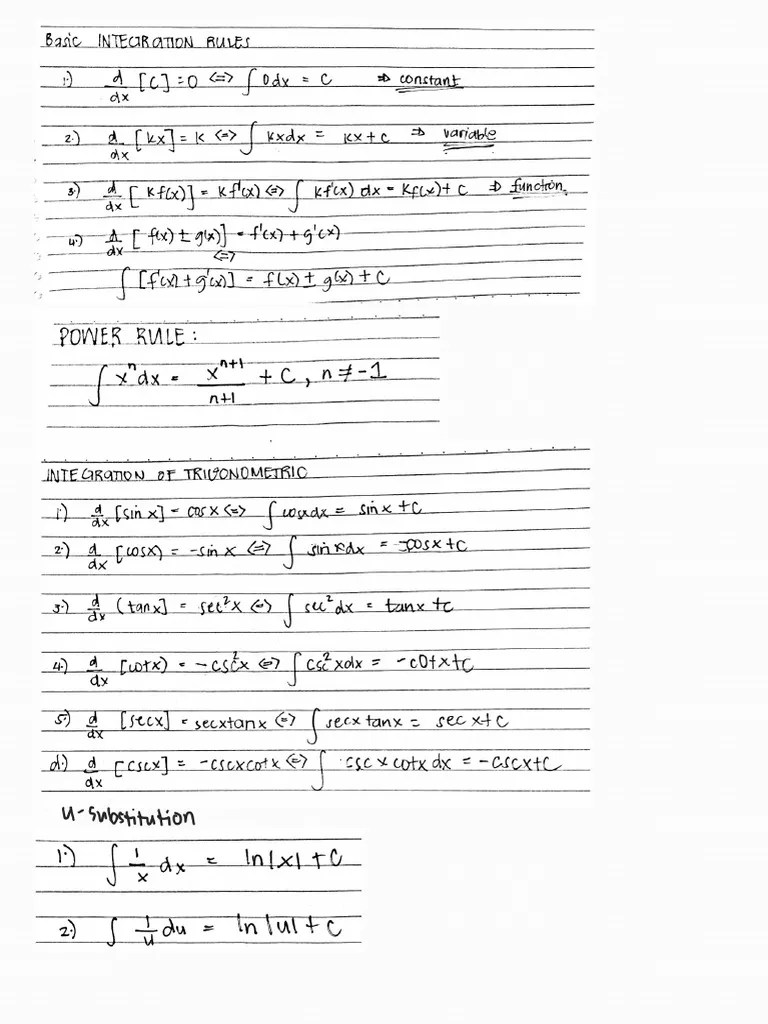 Basic INTEGRATION RULES
1.) d/dx [C] = 0 <=> ∫ 0dx = C => constant
2.) d/dx [kx] = k <=> ∫ kxdx = kx + c => variable
3.) d/dx [kf(x)] = kf'(x) <=> ∫ kf'(x) dx = kf(x) + C => function.
4.) d/dx [f(x) ± g(x)] = f'(x) + g'(x)
<=>
∫ [f'(x) + g'(x)] = f(x) ± g(x) + C
POWER RULE:
∫ x^n dx = x^(n+1)/(n+1) + C, n ≠ -1
INTEGRATION OF TRIGONOMETRIC
1.) d/dx [sin x] = cos x <=> ∫ cosxdx = sin x + C
2.) d/dx [cosx) = -sin x <=> ∫ sin xdx = -cosx + C
3.) d/dx (tanx] = sec²x <=> ∫ sec² dx = tanx + c
4.) d/dx [cotx) = -csc²x <=> ∫ csc² xdx = -cotx + C
5.) d/dx [secx] = secxtanx <=> ∫ secx tanx = sec x + C
d.) d/dx [cscx] = -cscxcotx <=> ∫ csc x cotx dx = -cscx + C
u-substitution
1.) ∫ 1/x dx = ln|x| + C
2.) ∫ 1/u du = ln|u| + C